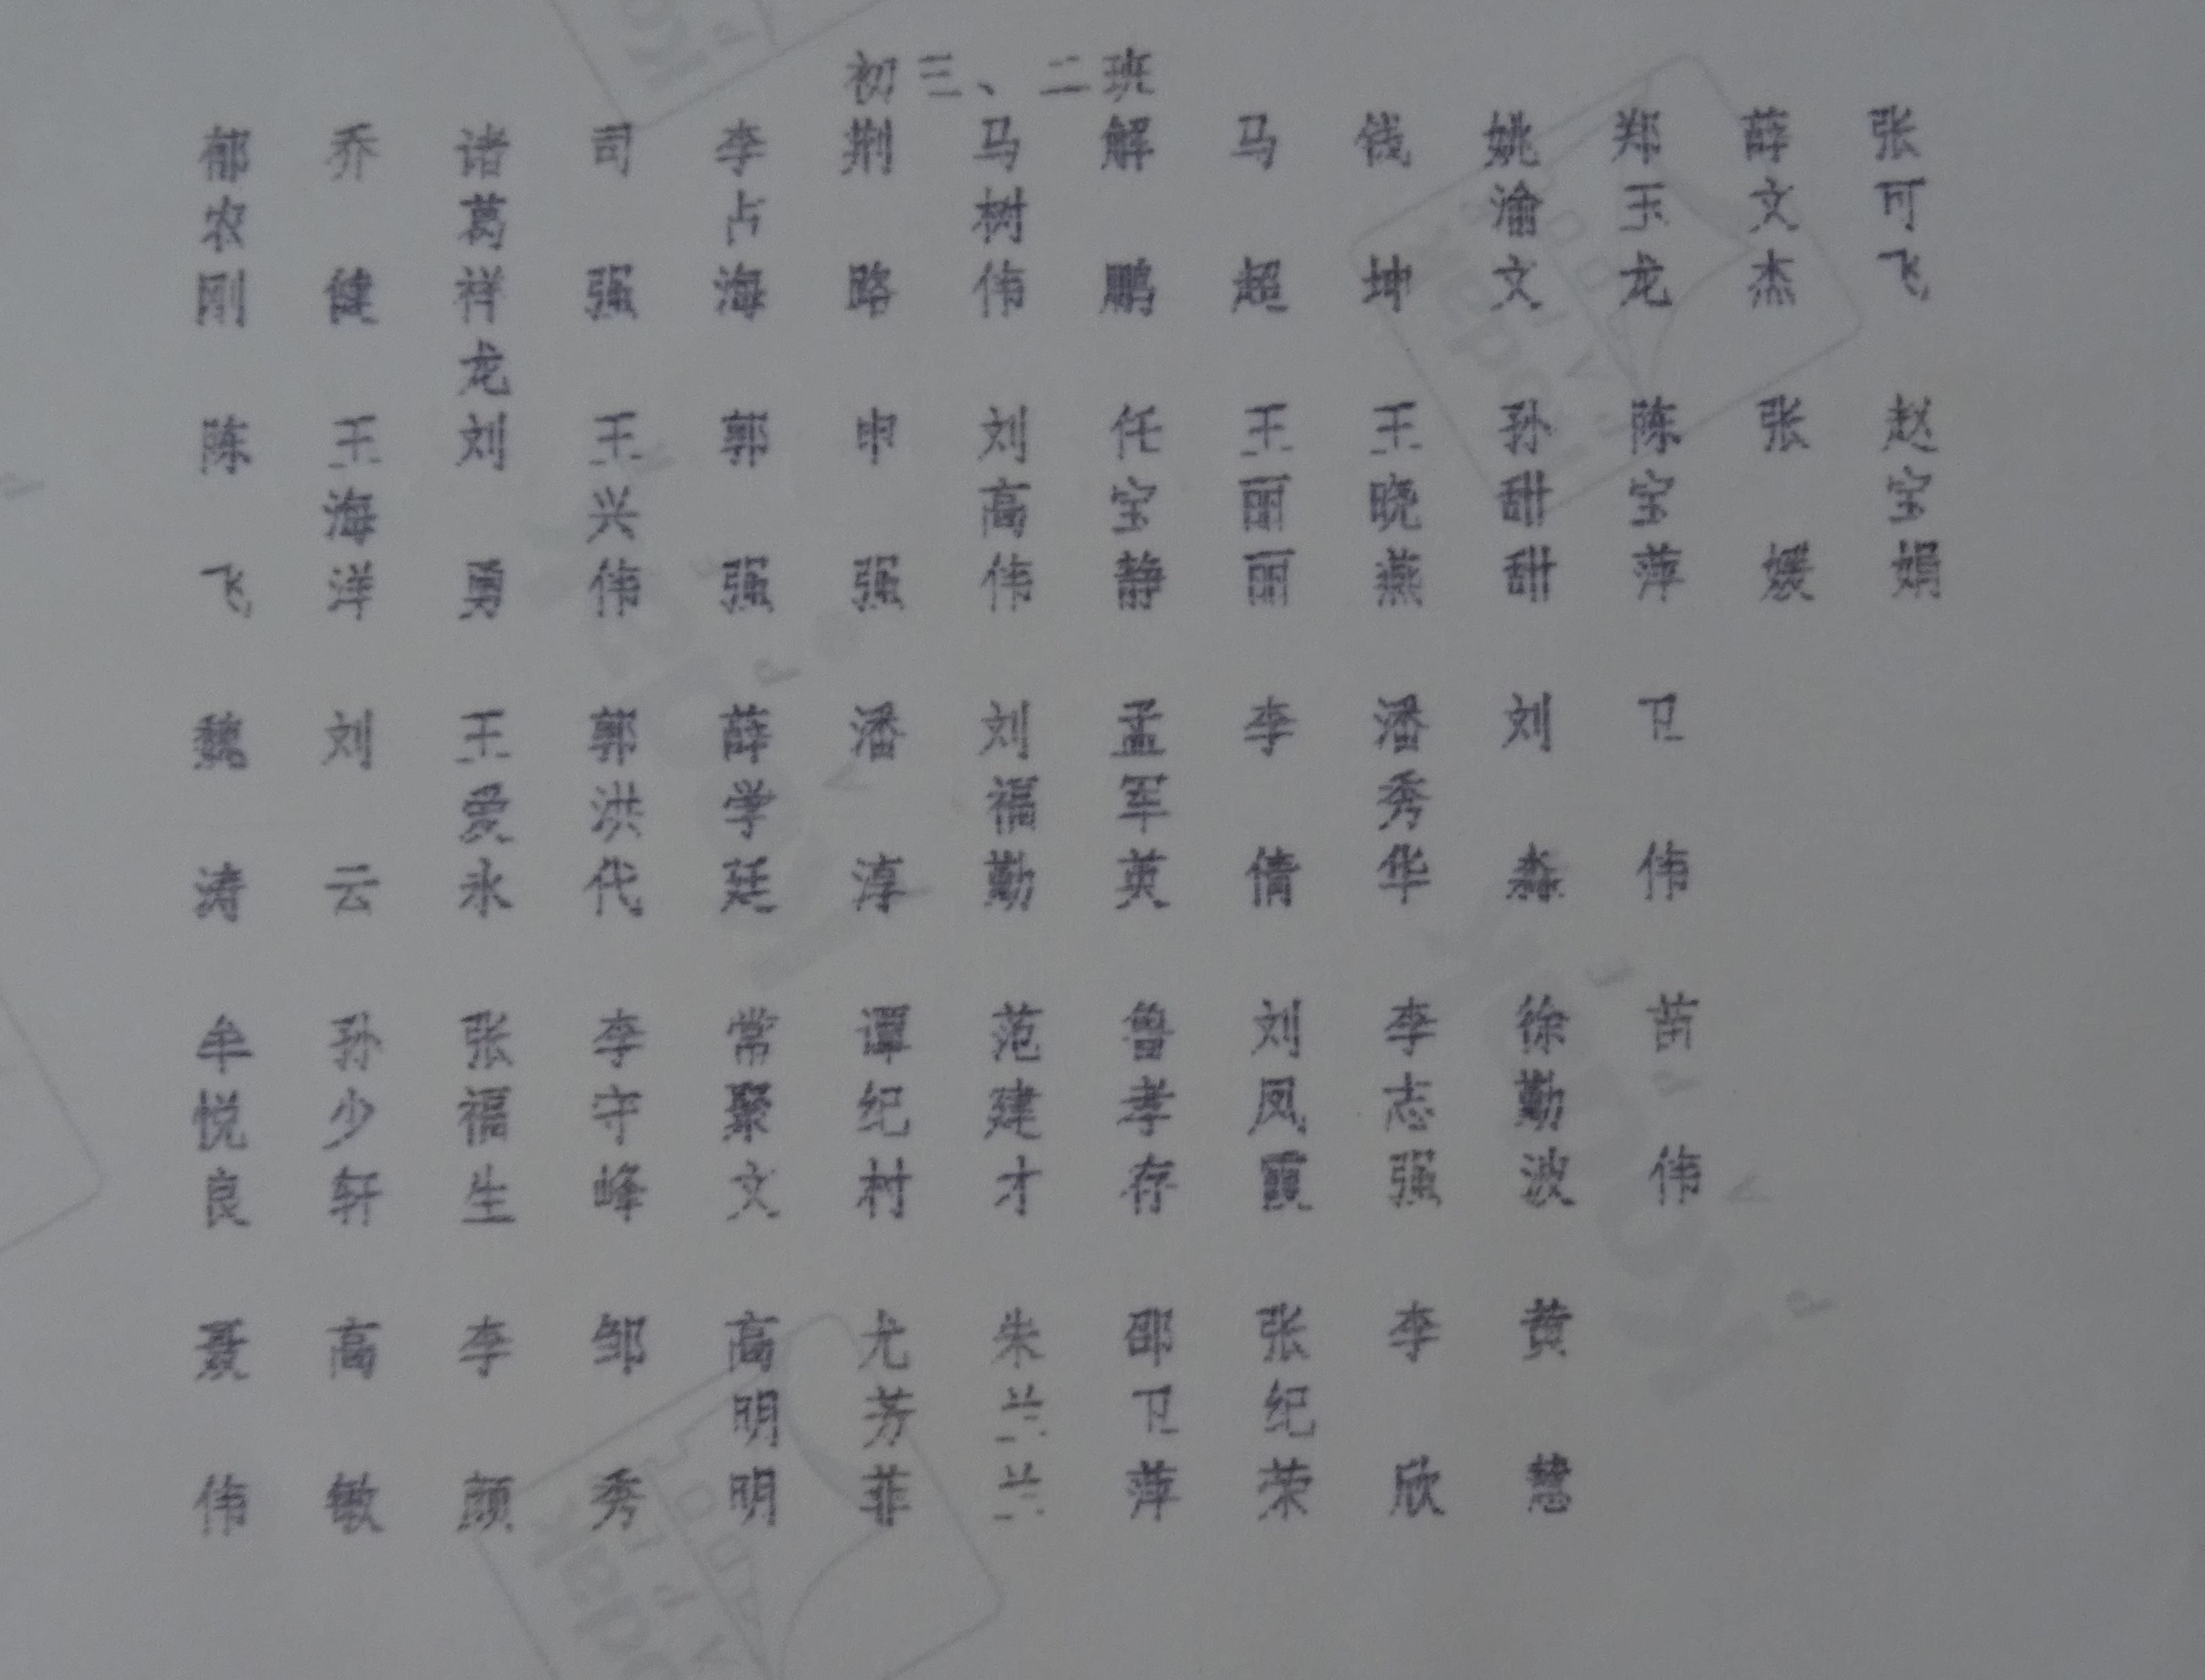 初三、二班
郁农刚 乔健 诸葛祥龙 司强 李占海 荆路 马树伟 解鹏 马超 钱坤 姚渝文 郑玉龙 薛文杰 张可飞
陈飞 王海洋 刘勇 王兴伟 郭强 申强 刘高伟 任宝静 王丽丽 王晓燕 孙甜甜 陈宝萍 张媛 赵宝娟
魏涛 刘云 王爱永 郭洪代 薛学廷 潘淳 刘福勤 孟军英 李倩 潘秀华 刘森 卫伟
牟悦良 孙少轩 张福生 李守峰 常聚文 谭纪村 范建才 鲁孝存 刘凤霞 李志强 徐勤波 苗伟
聂伟 高敏 李颜 邹秀 高明明 尤芳菲 朱兰兰 邵卫萍 张纪荣 李欣 黄慧